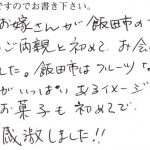 ですのでお書き下さい。
お嫁さんが飯田市の
ご両親と初めてお会
した。飯田市はフルーツな
がいっぱい、イメージ
お菓子も初めてで
感激しました!!